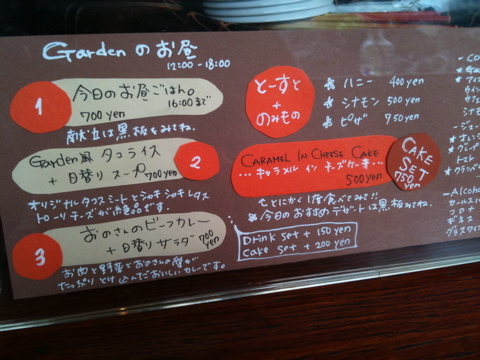 Gardenのお昼
12:00-18:00
1
今日のお昼ごはん。
700yen 16:00まで
献立は黒板をみてね。
Garden風 タコライス
+日替り スープ 700yen
2
オリジナルタコスミートとシャキシャキレタス
トローリチーズが
3
おのさんのビーフカレー
+日替り サラダ 700 yen
お肉と野菜とおのさんの愛が
たっぷりとけ込んだおいしいカレーです。
とーすと
+
のみもの
ハニー 400yen
シナモン 500yen
ピザ 750yen
CARAMEL IN CHEESE CAKE
...キャラメル イン チーズケーキ...
500yen
CAKE
SET
750
yen
1度食べてみて!!
今日のおすすめデザートは黒板をみてね。
Drink set + 150 yen
Cake set + 200 yen
トマト